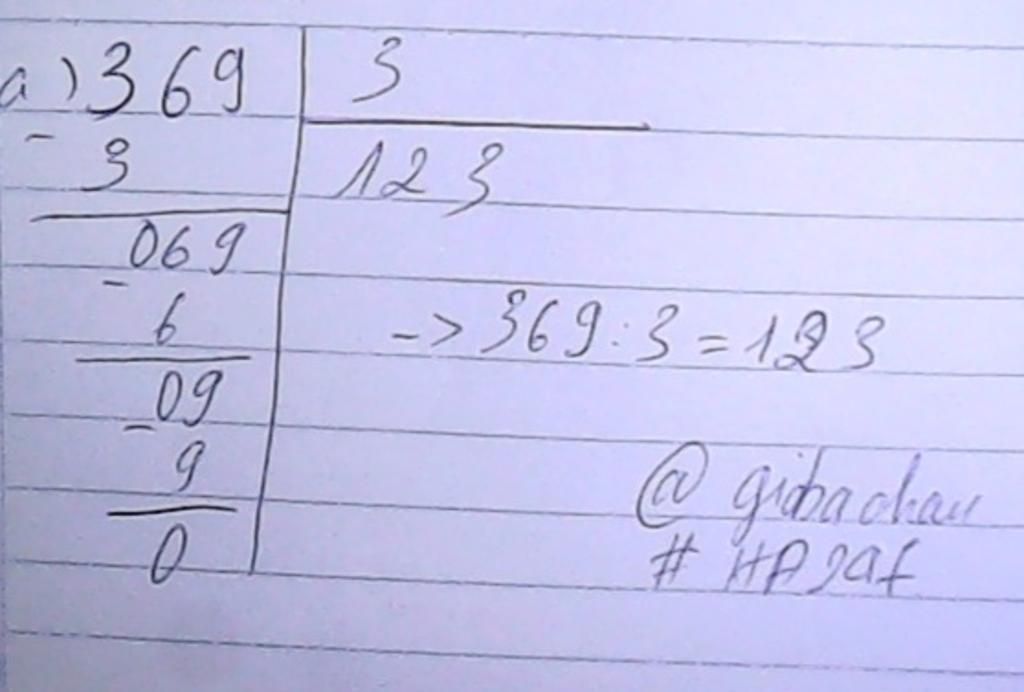 a) 369 | 3
- 3 | 123
069
- 6
09
- 9
0
-> 369 : 3 = 123
@
#